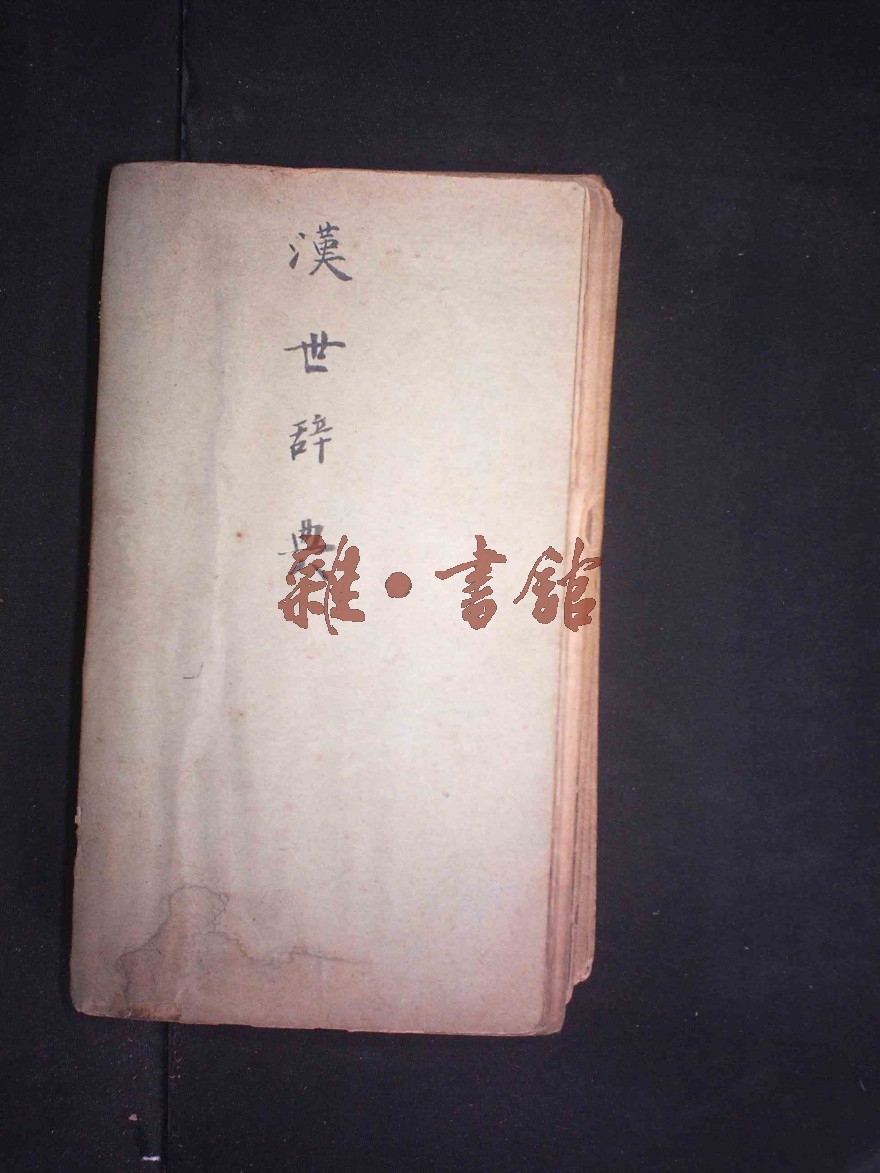 漢世辞典
雜·書館